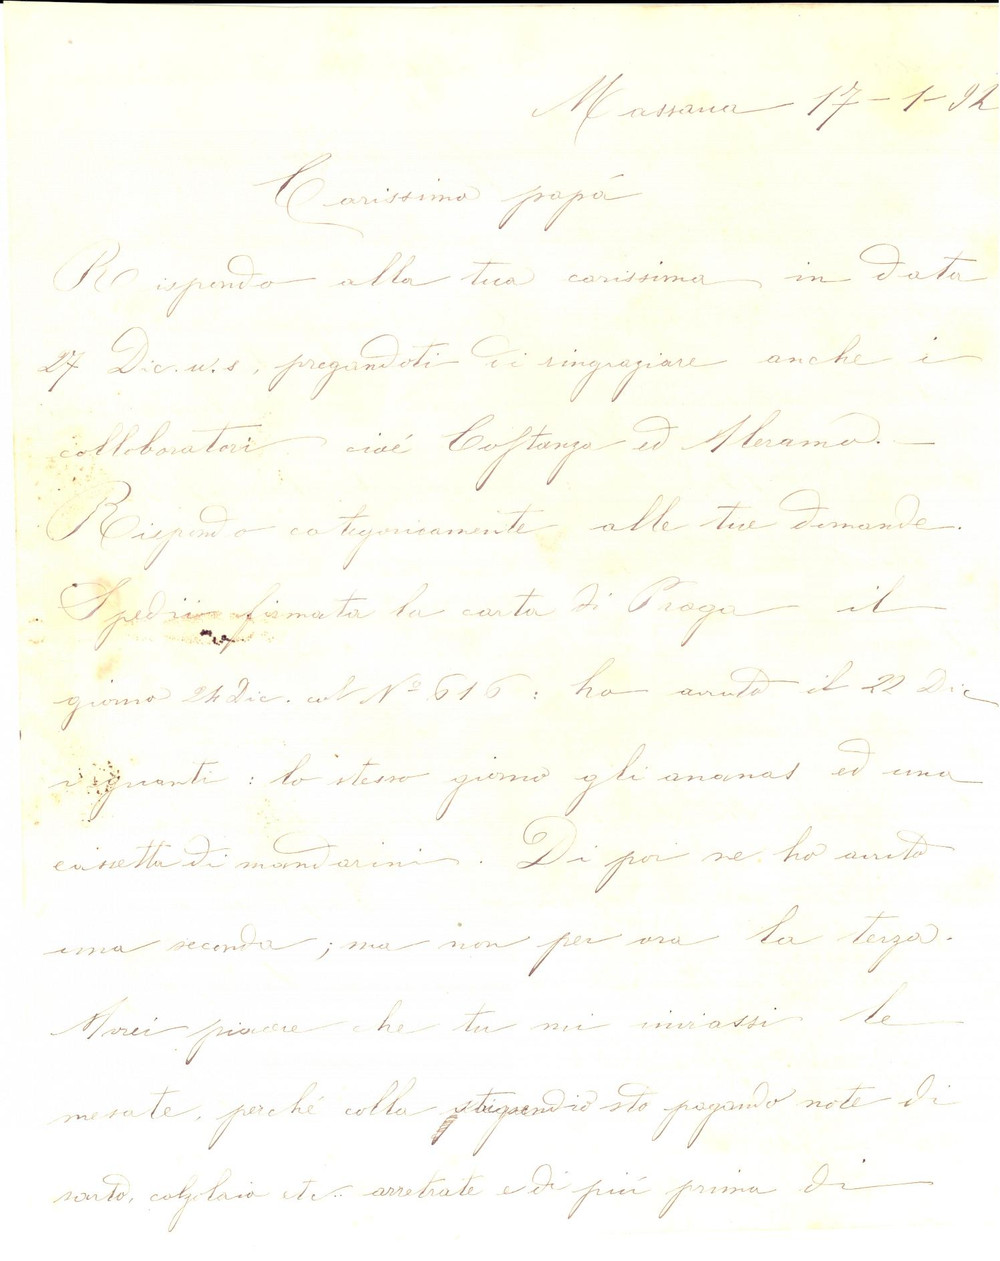 Massaua 17-1-92
Carissimo papá
Rispondo alla tua carissima in data
27 Dic. u.s, pregandoti di ringraziare anche i
colloboratori cioé Costanzo ed Aleramo. —
Rispondo categoricamente alle tue domande.
Spedii firmata la carta di Praga il
giorno 24 Dic. col No 616 : ho avuto il 22 Dic
i guanti : lo stesso giorno gli ananas ed una
cassetta di mandarini. Di poi ne ho avuto
una seconda, ; ma non per ora la terza.
Avrei piacere che tu mi inviassi le
mesate, perché collo stipendio sto pagando note di
sarto, calzolaio etc.. arretrate e di piú prima di